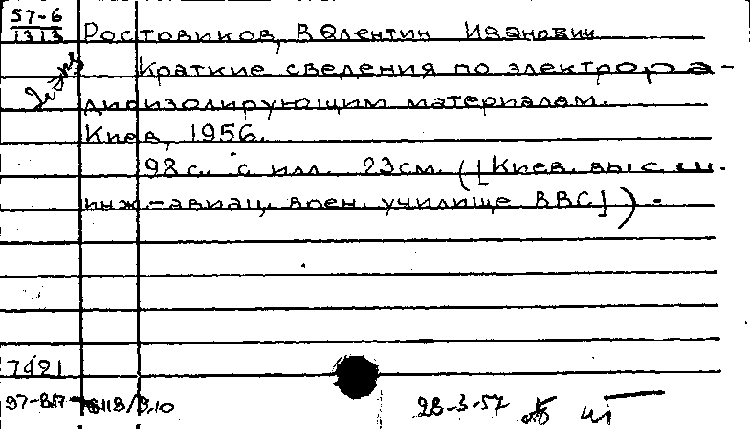 57-6
1313
Ростовиков, Валентин Иванович
Краткие сведения по электрора-
диоизолирующим материалам.
Киев, 1956.
98 с. с илл. 23 см. ([Киев. высш.
инж.-авиац. воен. училище ВВС]).
7421
28-3-57